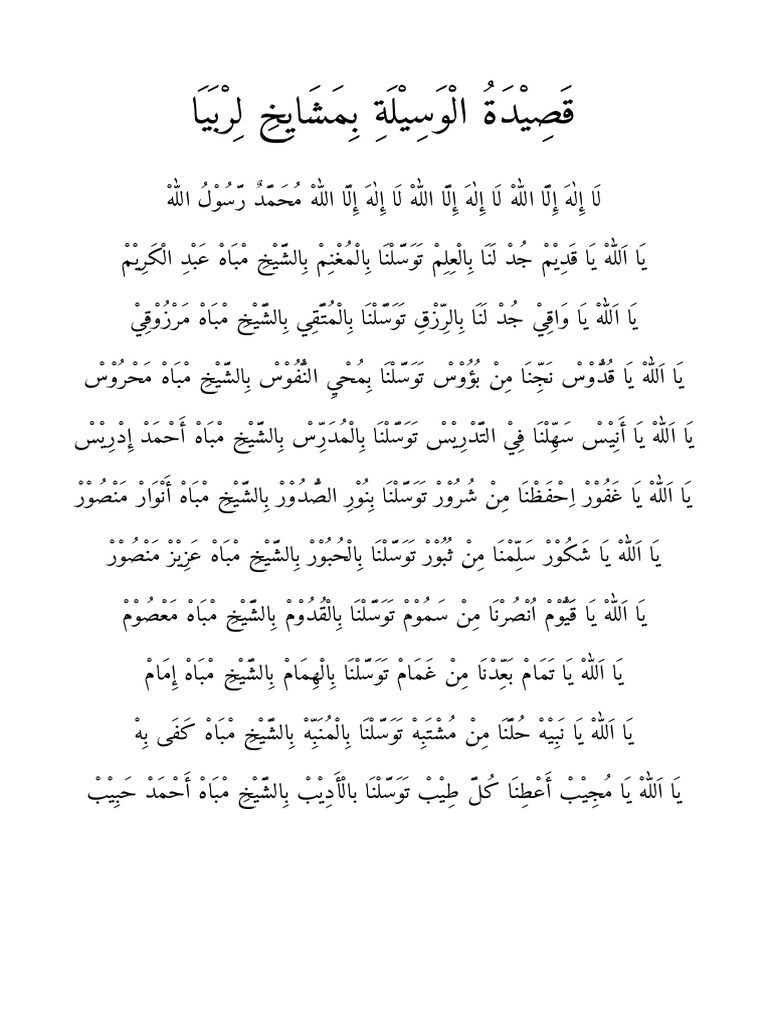 قَصِيْدَةُ الْوَسِيْلَةِ بِمَشَايِخِ لِرْبَيَا
لَا إِلٰهَ إِلَّا اللّٰهْ لَا إِلٰهَ إِلَّا اللّٰهْ لَا إِلٰهَ إِلَّا اللّٰهْ مُحَمَّدٌ رَّسُوْلُ اللّٰهْ
يَا اَللّٰهْ يَا قَدِيْمْ جُدْ لَنَا بِالْعِلِمْ تَوَسَّلْنَا بِالْمُغْنِمْ بِالشَّيْخِ مْبَاهْ عَبْدِ الْكَرِيْمْ
يَا اَللّٰهْ يَا وَاقِيْ جُدْ لَنَا بِالرِّزْقِ تَوَسَّلْنَا بِالْمُتَّقِي بِالشَّيْخِ مْبَاهْ مَرْزُوْقِيْ
يَا اَللّٰهْ يَا قُدُّوْسْ نَجِّنَا مِنْ بُؤُوْسْ تَوَسَّلْنَا بِمُحْيِ النُّفُوْسْ بِالشَّيْخِ مْبَاهْ مَحْرُوْسْ
يَا اَللّٰهْ يَا أَنِيْسْ سَهِّلْنَا فِيْ التَّدْرِيْسْ تَوَسَّلْنَا بِالْمُدَرِّسْ بِالشَّيْخِ مْبَاهْ أَحْمَدْ إِدْرِيْسْ
يَا اَللّٰهْ يَا غَفُوْرْ اِحْفَظْنَا مِنْ شُرُوْرْ تَوَسَّلْنَا بِنُوْرِ الصُّدُوْرْ بِالشَّيْخِ مْبَاهْ أَنْوَارْ مَنْصُوْرْ
يَا اَللّٰهْ يَا شَكُوْرْ سَلِّمْنَا مِنْ ثُبُوْرْ تَوَسَّلْنَا بِالْحُبُوْرْ بِالشَّيْخِ مْبَاهْ عَزِيْزْ مَنْصُوْرْ
يَا اَللّٰهْ يَا قَيُّوْمْ اُنْصُرْنَا مِنْ سَمُوْمْ تَوَسَّلْنَا بِالْقُدُوْمْ بِالشَّيْخِ مْبَاهْ مَعْصُوْمْ
يَا اَللّٰهْ يَا تَمَامْ بَعِّدْنَا مِنْ غَمَامْ تَوَسَّلْنَا بِالْهِمَامْ بِالشَّيْخِ مْبَاهْ إِمَامْ
يَا اَللّٰهْ يَا نَبِيْهْ حُلَّنَا مِنْ مُشْتَبِهْ تَوَسَّلْنَا بِالْمُنَبِّهْ بِالشَّيْخِ مْبَاهْ كَفَى بِهْ
يَا اَللّٰهْ يَا مُجِيْبْ أَعْطِنَا كُلَّ طِيْبْ تَوَسَّلْنَا بالْأَدِيْبْ بِالشَّيْخِ مْبَاهْ أَحْمَدْ حَبِيْبْ